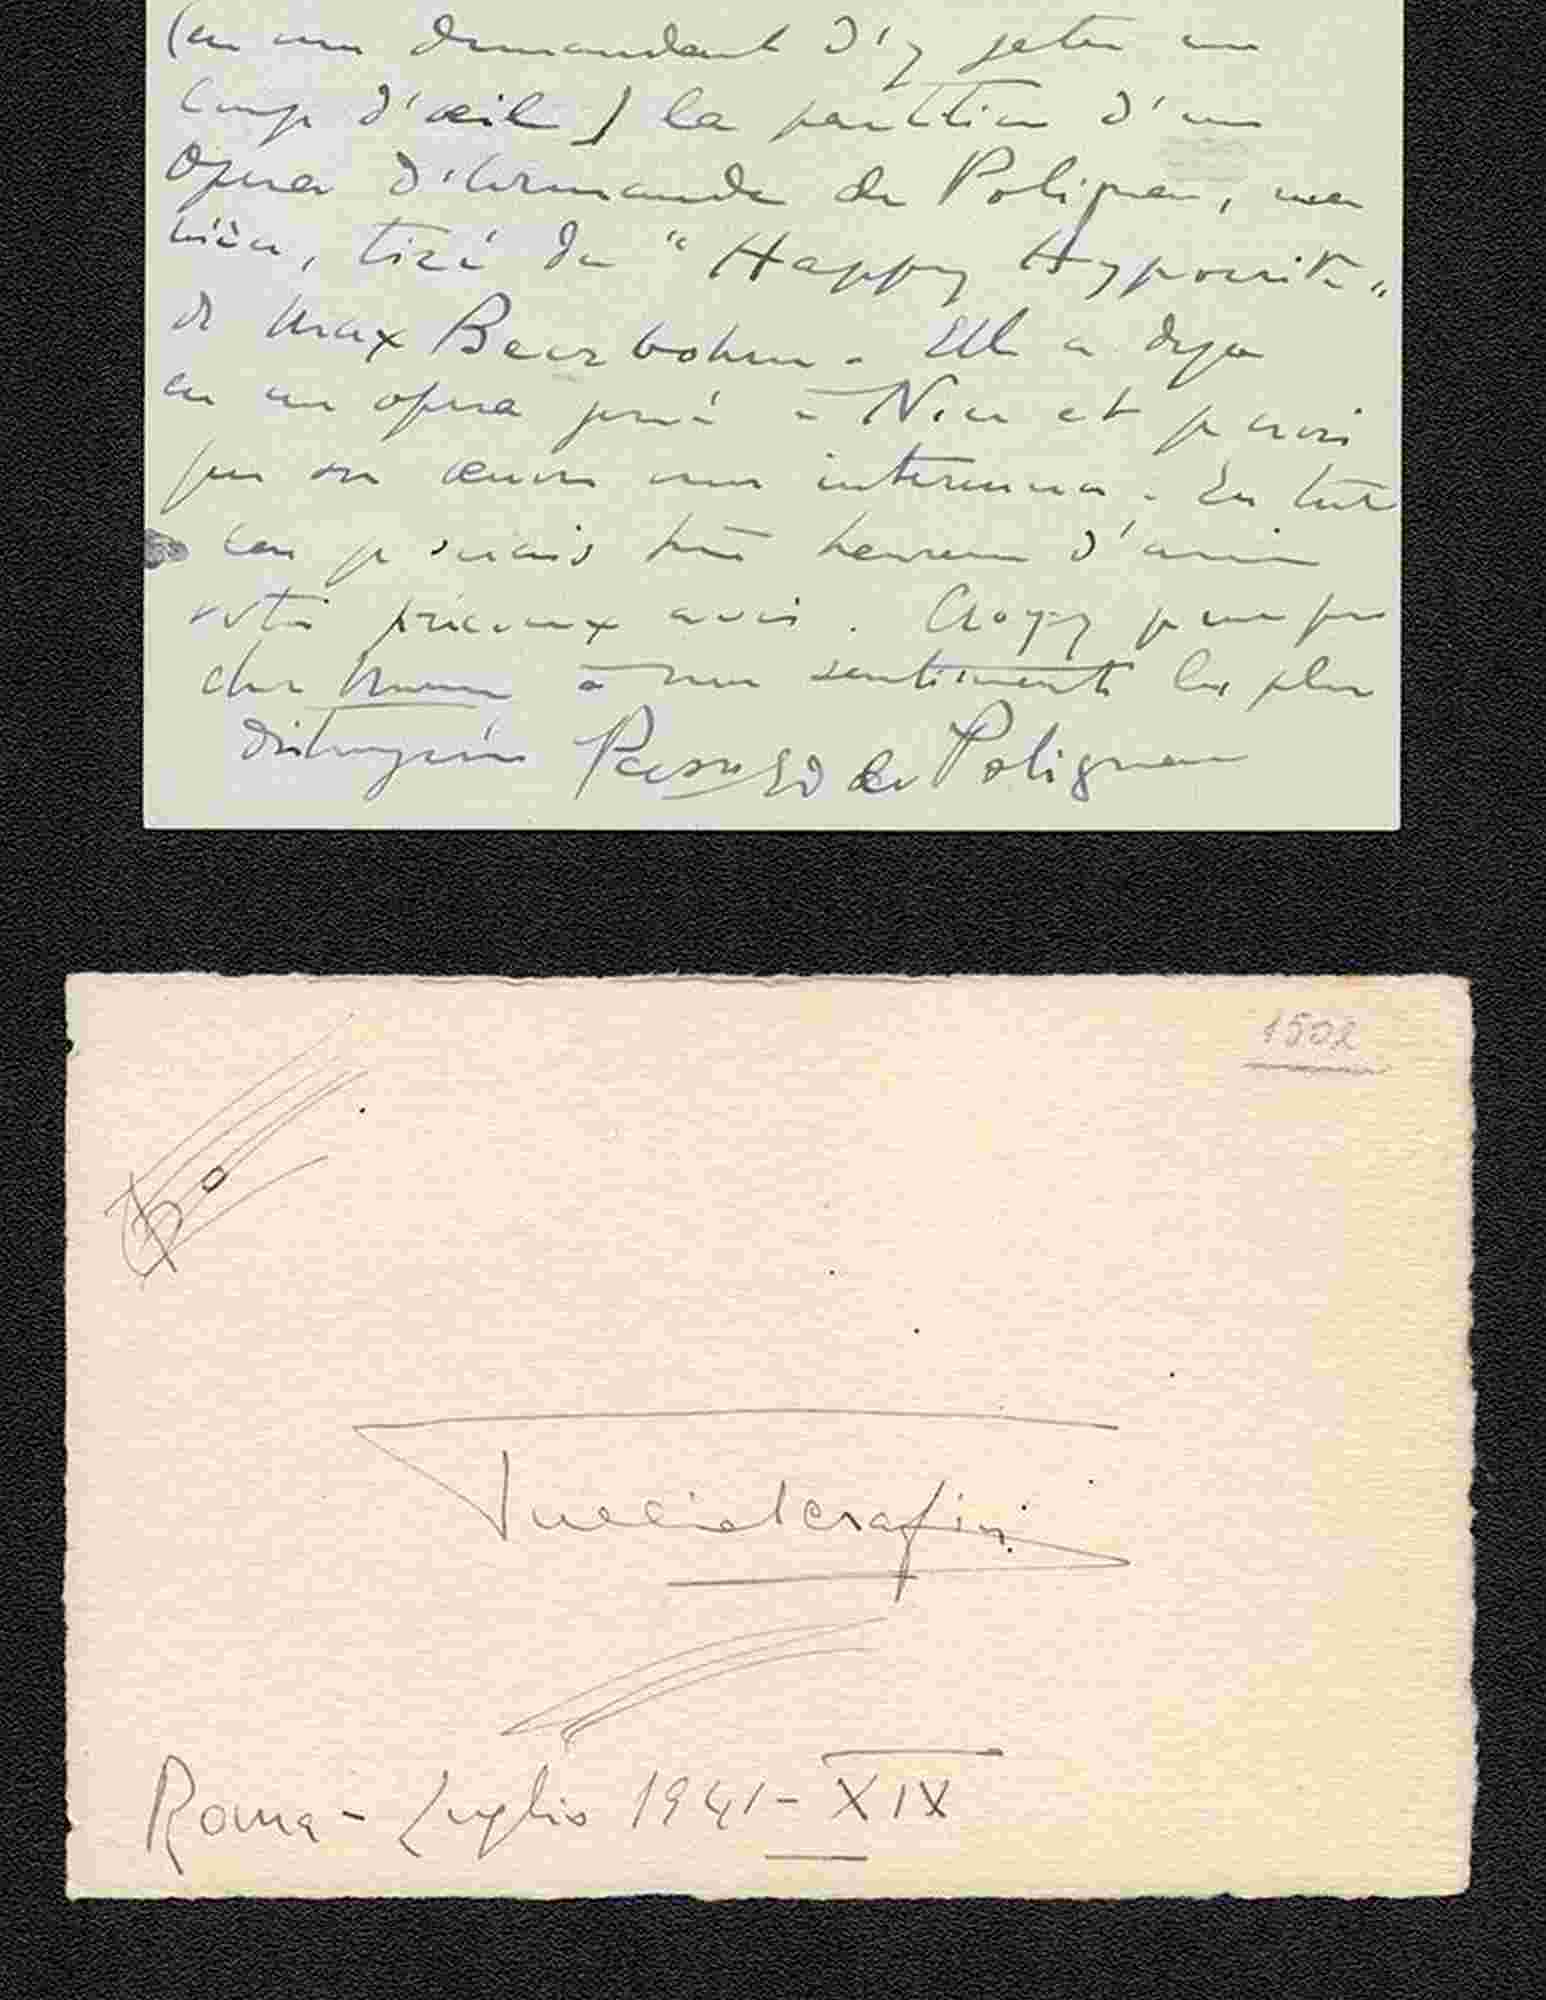 (en vous demandant d'y jeter un
coup d'œil) la partition d'un
opéra d'Armande de Polignac, ma
nièce, tiré du "Happy Hypocrite"
de Max Beerbohm - Elle a déja
eu un opera joué à Nice et je crois
que son œuvre vous interessera. En tout
cas je serais très heureuse d'avoir
votre précieux avis. Croyez je vous prie
cher à mes sentiments les plus
distingués Pcesse Ed de Polignac
1502
Tullio Serafin
Roma - Luglio 1941 - XIX